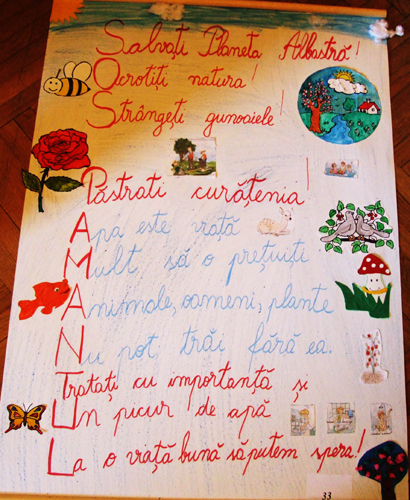 Salvați Planeta Albastră!
Ocrotiți natura!
Strângeți gunoaiele!
Păstrati curățenia!
Apa este viață
Mult să o prețuiți
Animale, oameni, plante
Nu pot trăi fără ea.
Tratați cu importanță și
Un picur de apă
La o viață bună să putem spera!
33